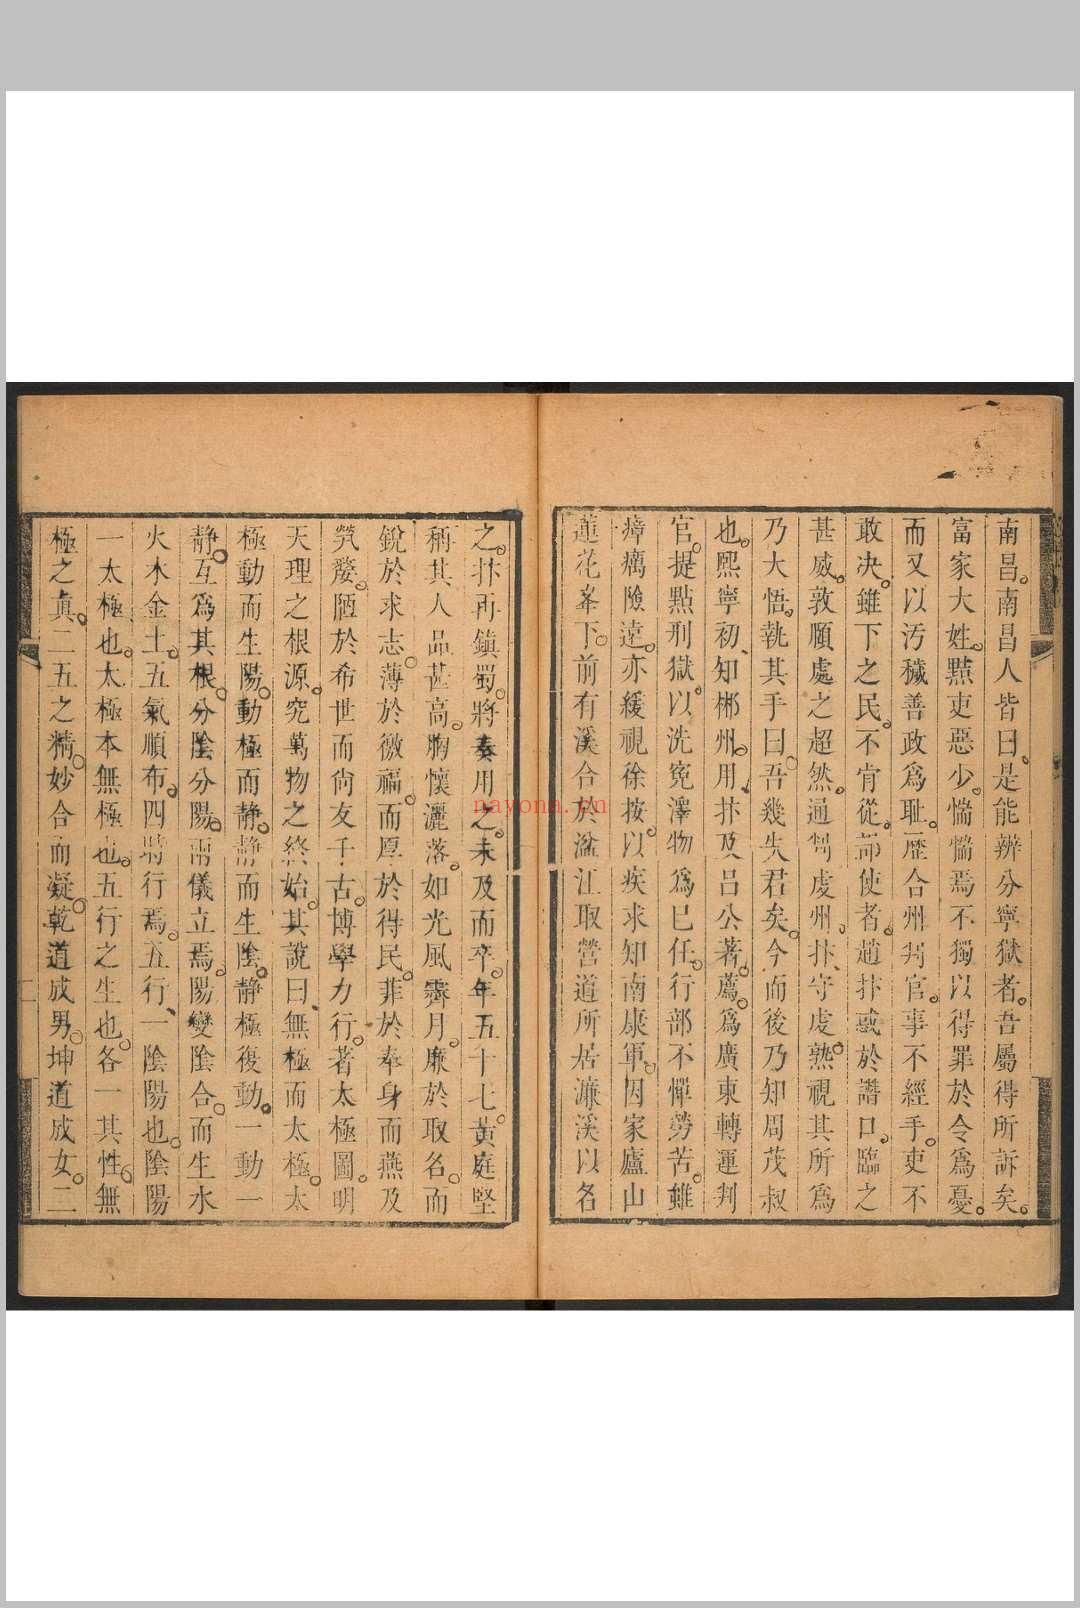 南昌。南昌人皆曰。是能辨分寧獄者。吾屬得所訴矣。
富家大姓。黠吏惡少。惴惴焉不獨以得罪於令爲憂。
而又以汚穢善政爲耻。歷合州判官。事不經手。吏不
敢决。雖下之民。不肯從。部使者。趙抃惑於譖口。臨之
甚威。敦頤處之超然。通判虔州。抃守虔。熟視其所爲
乃大悟。執其手曰。吾幾失君矣。今而後乃知周茂叔
也。熙寧初、知郴州。用抃及呂公著。薦。爲廣東轉運判
官。提點刑獄。以洗寃澤物爲巳任。行部不憚勞苦。雖
瘴癘險遠。亦緩視徐按。以疾求知南康軍。因家廬山
蓮花峯下。前有溪。合於湓江。取營道所居濂溪以名
之。抃再鎮蜀。將奏用之。未及而卒。年五十七。黃庭堅
稱其人品甚高。胸懷灑落。如光風霽月。廉於取名。而
銳於求志。薄於徼福。而厚於得民。菲於奉身而燕及
煢嫠。陋於希世而尙友千古。博學力行。著太極圖。明
天理之根源。究萬物之終始。其說曰、無極而太極。太
極動而生陽。動極而靜。靜而生陰。靜極復動。一動一
靜。互爲其根。分陰分陽。兩儀立焉。陽變陰合。而生水
火木金土。五氣順布。四時行焉。五行、一陰陽也。陰陽
一太極也。太極本無極也。五行之生也。各一其性。無
極之眞。二五之精。妙合而凝。乾道成男。坤道成女。二
nayona.cn